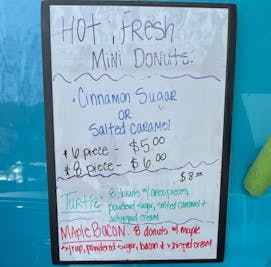 HOT, FRESH
MINI DONUTS.
• Cinnamon Sugar
OR
Salted Caramel
* 6 piece - $5.00
* 8 piece - $6.00
$8.00
Turtle: 8 donuts w/ oreo pieces,
powdered sugar, salted caramel +
whipped cream
MAPLE BACON: 8 donuts w/ maple
syrup, powdered sugar, bacon + whipped cream